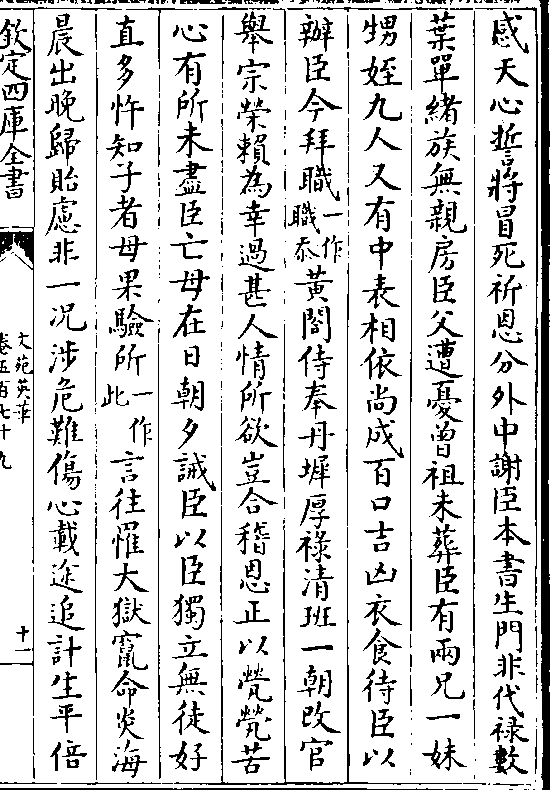 感天心誓將冒死祈恩分外中謝臣本書生門非代祿數
葉單緒族無親房臣父遭憂曾祖未葬臣有兩兄一妹
甥姪九人又有中表相依尚成百口吉凶衣食待臣以
辦臣今拜職一作職忝黃閤侍奉丹墀厚祿清班一朝改官
舉宗榮賴為幸過甚人情所欲豈合稽恩正以煢煢苦
心有所未盡臣亡母在日朝夕誡臣以臣獨立無徒好
直多忤知子者母果驗所一作此言往罹大獄竄命炎海
晨出晚歸貽慮非一况涉危難傷心載途追計生平倍
欽定四庫全書
文苑英華
卷五百七十九
十一